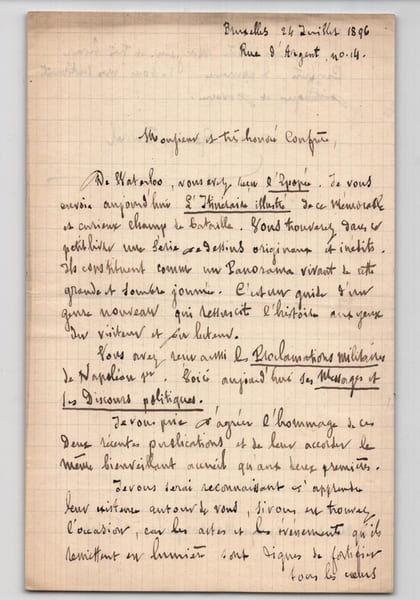 Bruxelles 24 Juillet 1896
Rue d'Argent, no. 14.
Monsieur et très honoré Confrère,
De Waterloo, vous avez reçu l'Epopée. Je vous
envoie aujourd'hui L'Itinéraire illustré de ce mémorable
et curieux champ de bataille. Vous trouverez dans ce
petit livre une série de dessins originaux et inédits.
Ils constituent comme un Panorama vivant de cette
grande et sombre journée. C'est un guide d'un
genre nouveau qui ressuscit l'histoire aux yeux
du visiteur et du lecteur.
Vous avez reçu aussi les Proclamations militaires
de Napoléon 1er. Voici aujourd'hui ses Messages et
ses Discours politiques.
Je vous prie d'agréer l'hommage de ces
deux récentes publications et de leur accorder le
même bienveillant accueil qu'aux deux premières.
Je vous serai reconnaissant d'apprendre
leur existence autour de vous, si vous en trouvez
l'occasion, car les actes et les événements qu'ils
remettent en lumière sont dignes de fortifier
tous les cœurs